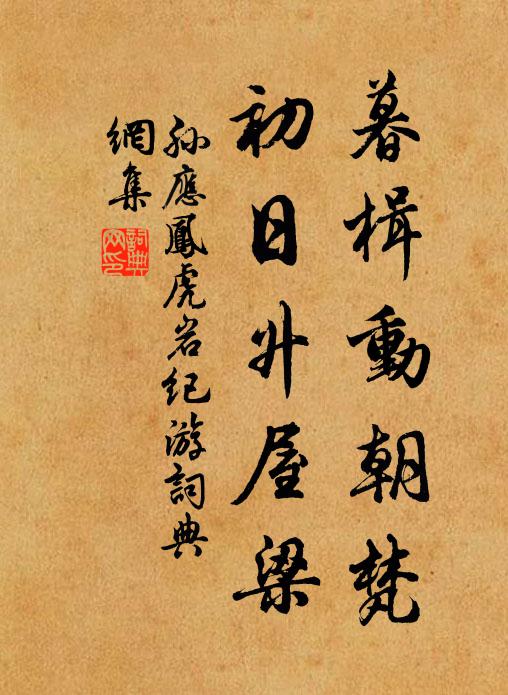 暮楫動朝梵
初日升屋梁
孫應鳳虎岩纪游詞典
網集
詞典
网印